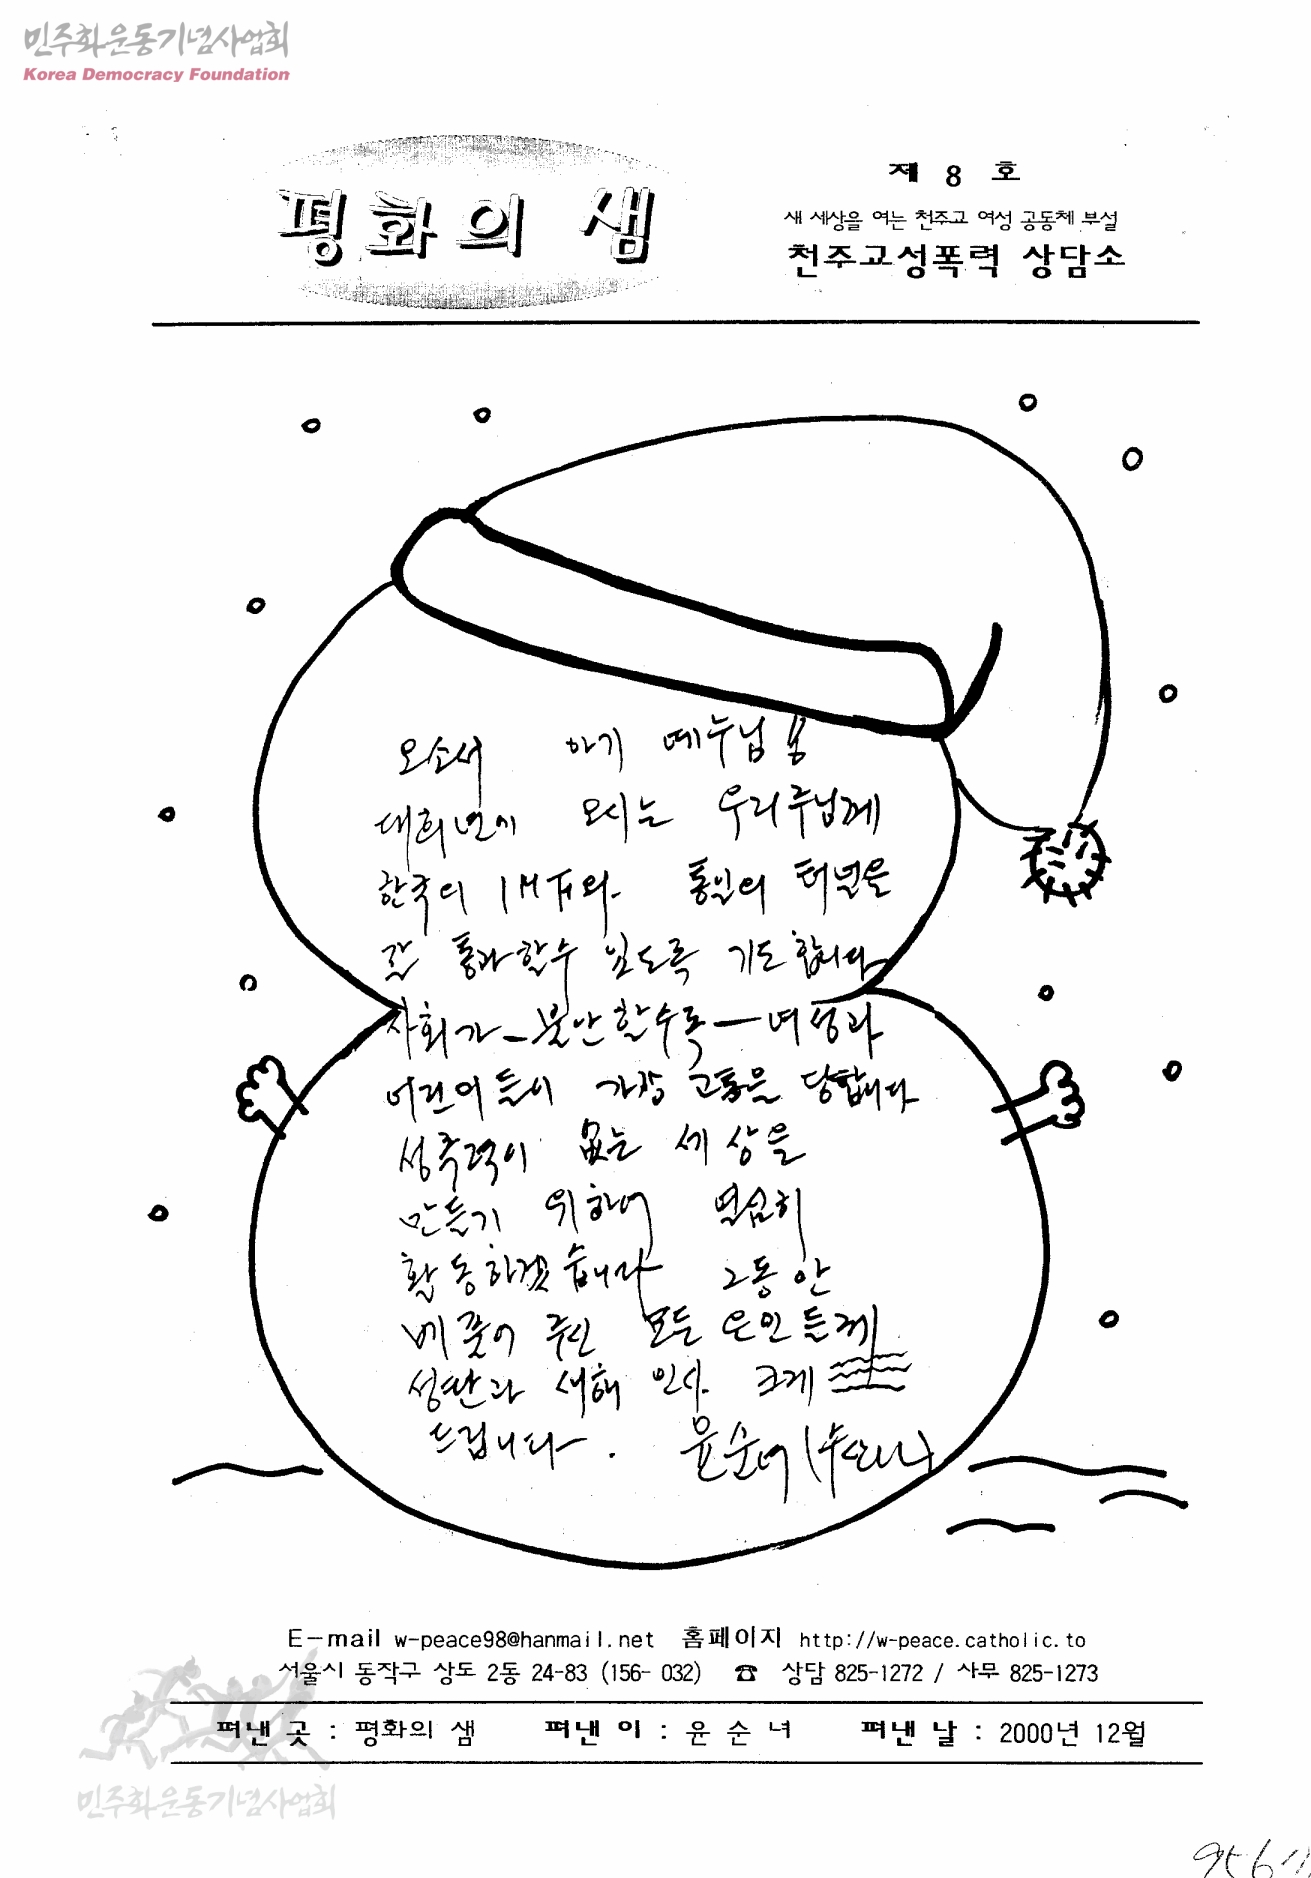 민주화운동기념사업회
Korea Democracy Foundation
평화의 샘
제 8 호
새 세상을 여는 천주교 여성 공동체 부설
천주교성폭력 상담소
오소서 아기 예수님
대희년에 오시는 우리주님께
한국의 IMF와 통일의 터널을
잘 통과할수 있도록 기도합니다
사회가 - 불안할수록 - 여성과
어린이들이 가장 고통을 당합니다
성폭력이 없는 세상을
만들기 위하여 열심히
활동하겠습니다 그동안
베풀어 주신 모든 은인들께
성탄과 새해 인사 크게
드립니다. 윤순녀 (수산나)
E-mail w-peace98@hanmail.net 홈페이지 http://w-peace.catholic.to
서울시 동작구 상도 2동 24-83 (156- 032) ☎ 상담 825-1272 / 사무 825-1273
펴낸 곳 : 평화의 샘 펴낸 이 : 윤 순 녀 펴낸 날 : 2000년 12월
민주화운동기념사업회